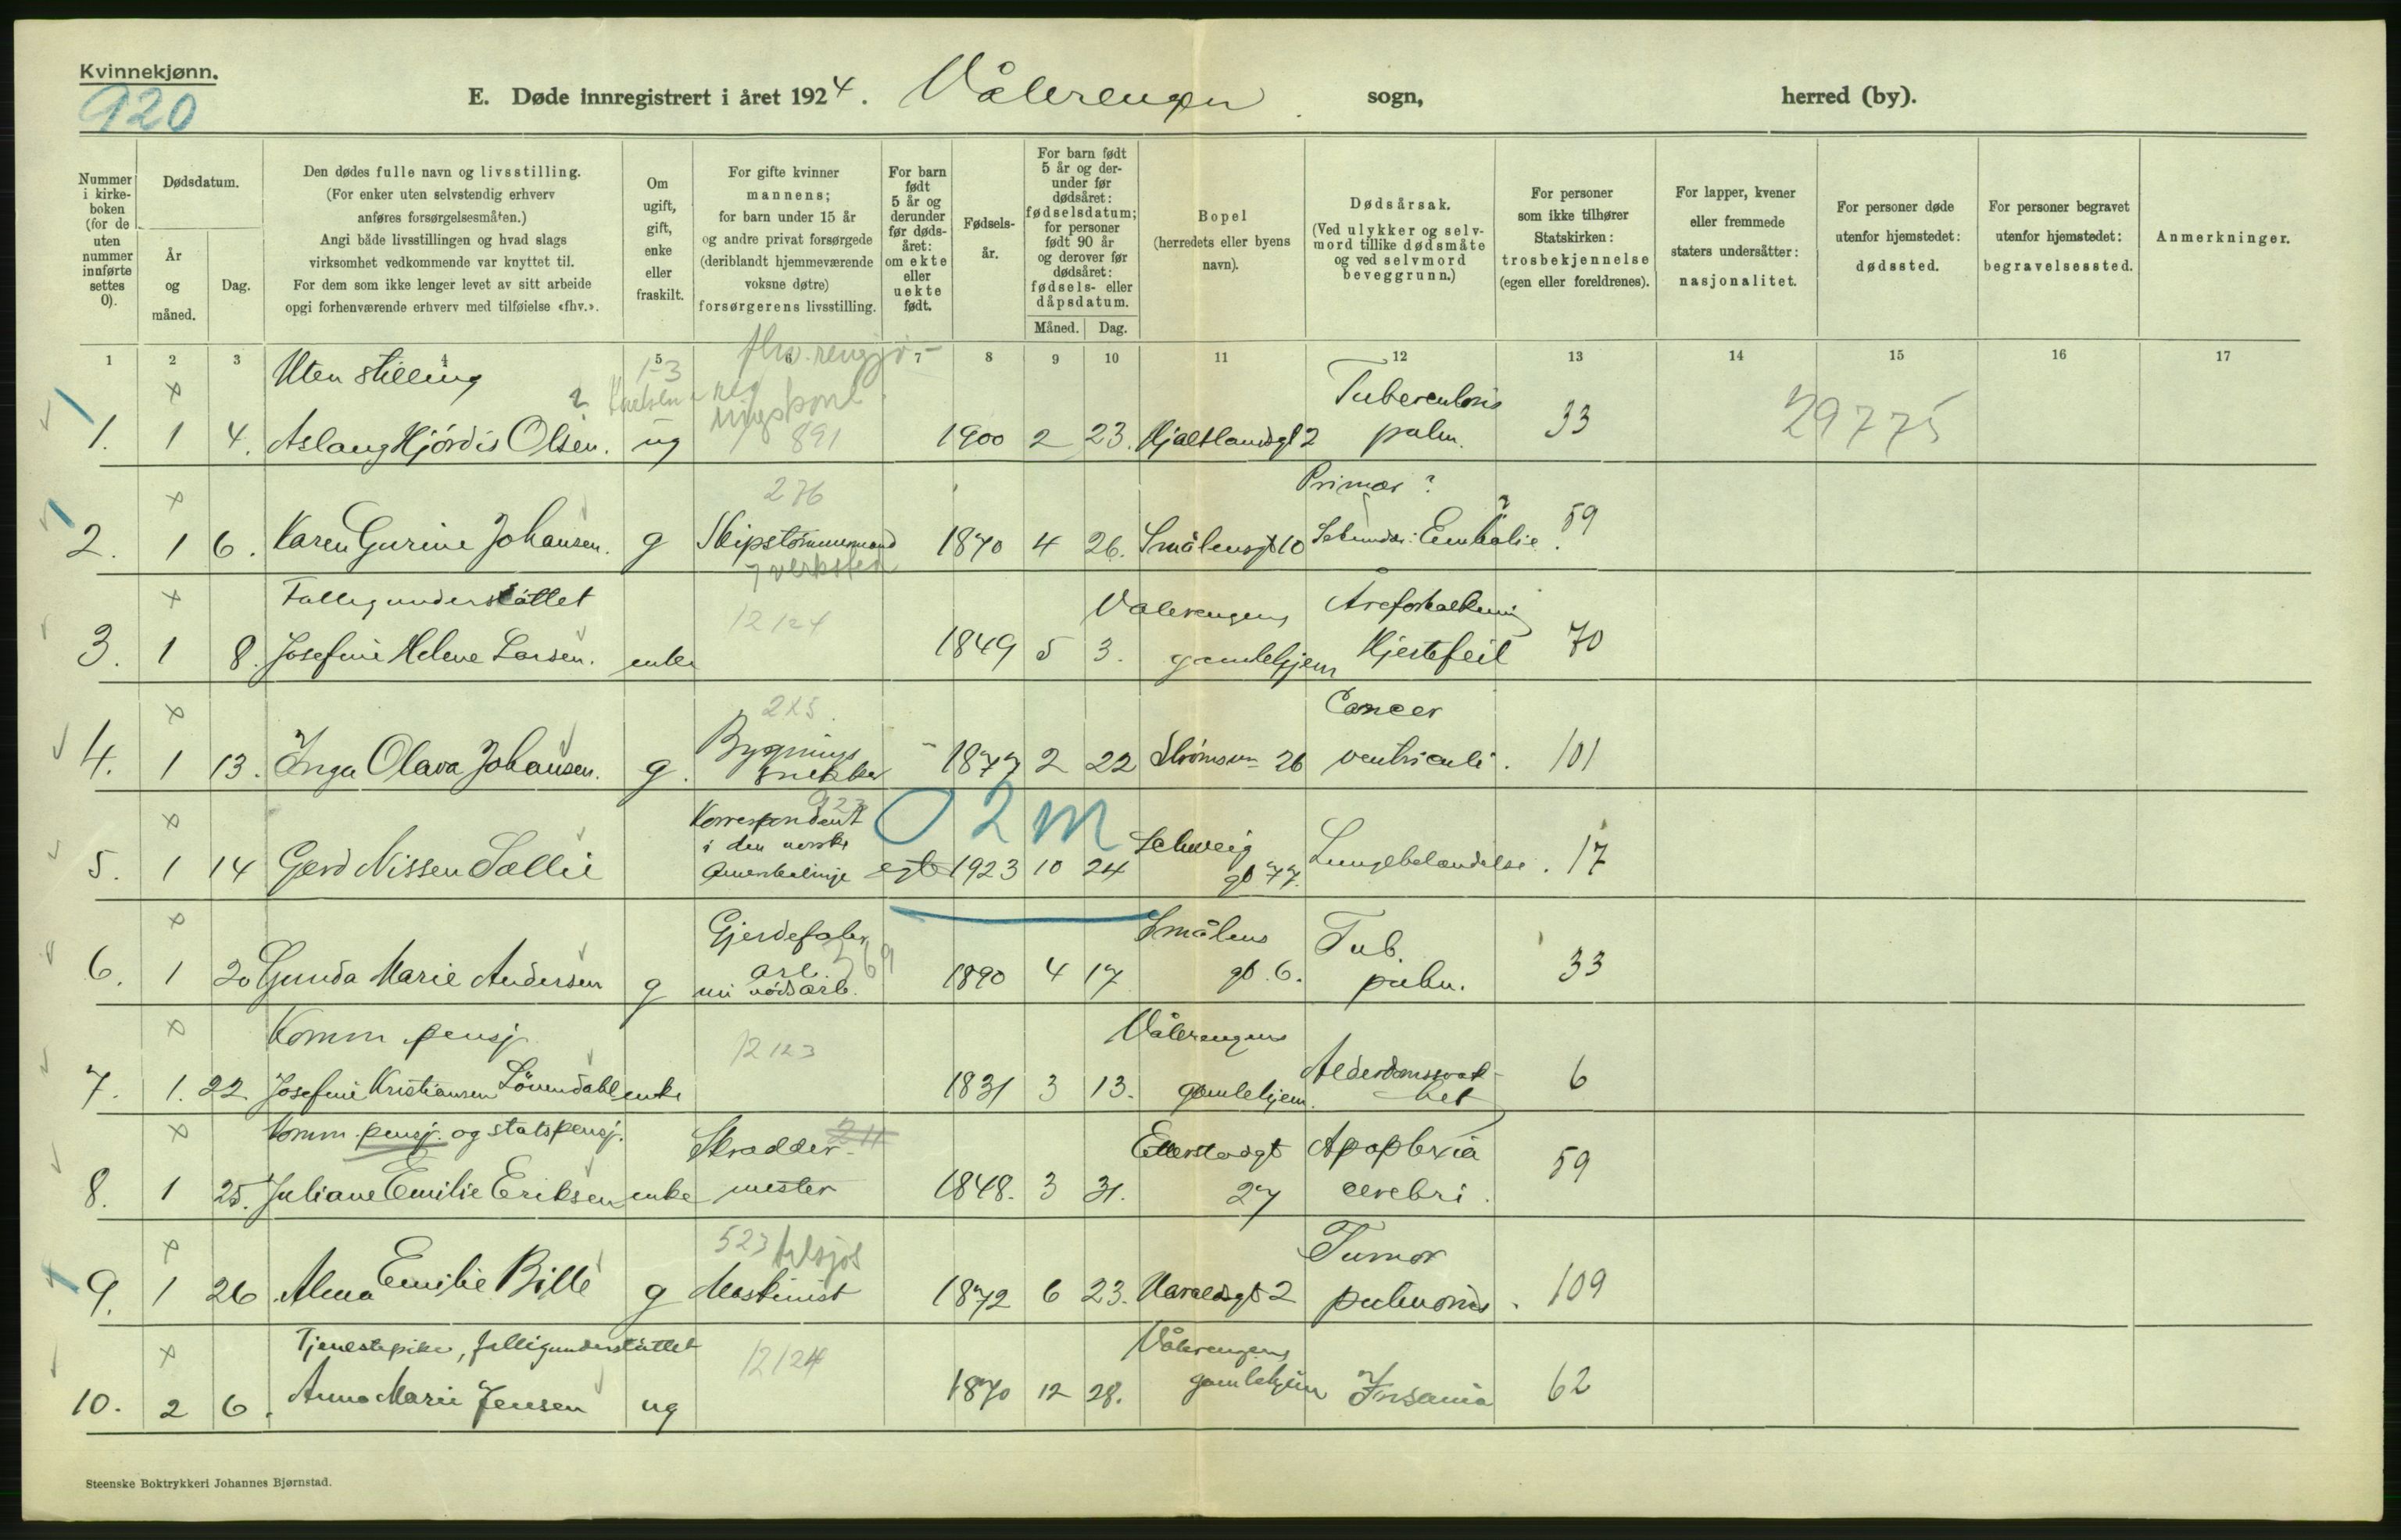 Kvinnekjønn.
920
E. Døde innregistrert i året 1924. Vålerengen sogn, herred (by).
Nummer i kirkeboken (for de uten nummer innførte settes 0).
Dødsdatum.
År og måned.
Dag.
Den dødes fulle navn og livsstilling.
(For enker uten selvstendig erhverv
anføres forsørgelsesmåten.)
Angi både livsstillingen og hvad slags
virksomhet vedkommende var knyttet til.
For dem som ikke lenger levet av sitt arbeide
opgi forhenværende erhverv med tilføielse «fhv.».
Om ugift, gift, enke eller fraskilt.
For gifte kvinner
mannens;
for barn under 15 år
og andre privat forsørgede
(deriblandt hjemmeværende
voksne døtre)
forsørgerens livsstilling.
For barn født 5 år og derunder før dødsåret: om ekte eller uekte født.
Fødselsår.
For barn født 5 år og derunder før dødsåret: fødselsdatum; for personer født 90 år og derover før dødsåret: fødsels- eller dåpsdatum.
Måned. Dag.
Bopel
(herredets eller byens
navn).
Dødsårsak.
(Ved ulykker og selvmord tillike dødsmåte og ved selvmord beveggrunn.)
For personer
som ikke tilhører
Statskirken:
trosbekjennelse
(egen eller foreldrenes).
For lapper, kvener
eller fremmede
staters undersåtter:
nasjonalitet.
For personer døde
utenfor hjemstedet:
dødssted.
For personer begravet
utenfor hjemstedet:
begravelsessted.
Anmerkninger.
1 2 3 4 5 6 7 8 9 10 11 12 13 14 15 16 17
Uten stilling
1-3
fhv. rengjø-
Tuberculosis
1. 1 4. Aslaug Hjórdis Olsen. ug 891 1900 2 23. Hjaltlandsgt 2 pulm. 33 29775
276
Primær ?
2. 1 6. Karen Gurine Johansen. g Skipstømmermand 1870 4 26. Smålensgt 10 Sekundær: Emboli ? 59
verksted
Fattigunderstöttet
12124
Vålerengens Åreforkalkning
3. 1 8. Josefine Helene Larsen. enke 1849 5 3. gamlehjem Hjertefeil 70
Cancer
4. 1 13. Inga Olava Johansen. g. Bygnings snekker 1877 2 22 Strömsvn 26 ventriculi. 101
02m
Korrespondent
i den norske
Amerikalinje
5. 1 14 Gerd Nissen Sollie egte 1923 10 24 Schweig gt 77. Lungebetændelse. 17
Gjerdefabr.
arb. 369
Smålens Tub.
6. 1 20 Gunda Marie Andersen g nu nödsarb. 1890 4 17 gt. 6. pulm. 33
Komm pensj.
12123
Vålerengens
7. 1. 22 Josefine Kristiansen Lövendahl enke 1831 3 13. gamlehjem. Alderdomssvakhet 6
Komm. pensj. og statspensj.
Skrædder- 211
Etterstadgt Apoplexia
8. 1 25. Juliane Emilie Eriksen enke mester 1848. 3 31. 27 cerebri. 59
523
Tumor
9. 1 26 Alma Emilie Bille g Maskinist 1872 6 23. Haraldsgt 2 pulmonis. 109
Tjenestepike, fattigunderstöttet
12124
Vålerengens
10. 2 6. Anna Marie Jensen ug 1870 12 28. gamlehjem Insania 62
Steenske Boktrykkeri Johannes Bjørnstad.